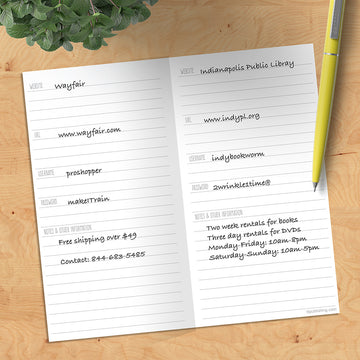 WEBSITE Wayfair
URL www.wayfair.com
USERNAME proshopper
PASSWORD make1Train
NOTES & OTHER INFORMATION
Free shipping over $49
Contact: 844-683-5485
WEBSITE Indianapolis Public Library
URL www.indypl.org
USERNAME indybookworm
PASSWORD 2wrinkle1time@
NOTES & OTHER INFORMATION
Two week rentals for books
Three day rentals for DVDs
Monday-Friday: 10am-8pm
Saturday-Sunday: 10am-5pm